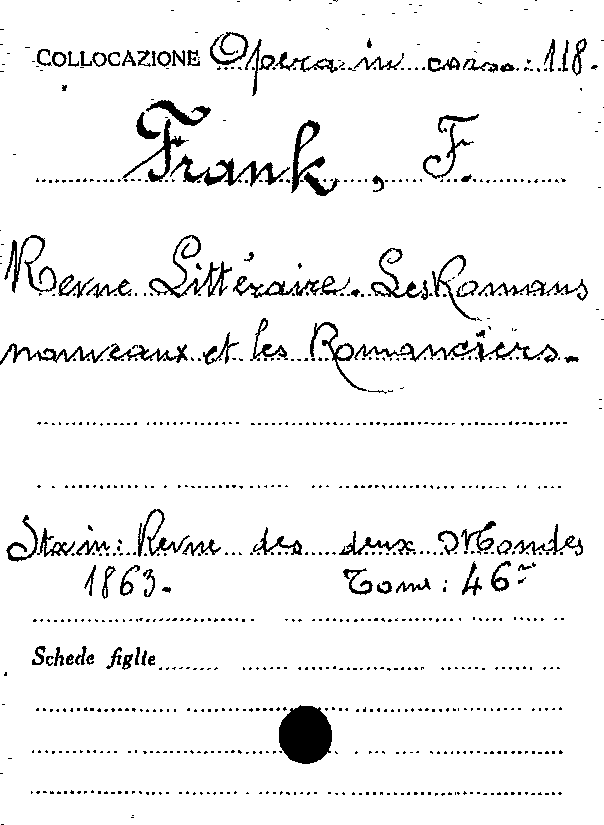 COLLOCAZIONE Opera in corso: 118.
Frank, F.
Revue Littéraire. Les Romans
nouveaux et les Romanciers.
Sta in: Revue des deux Mondes
1863. Tome: 46me
Schede figlie